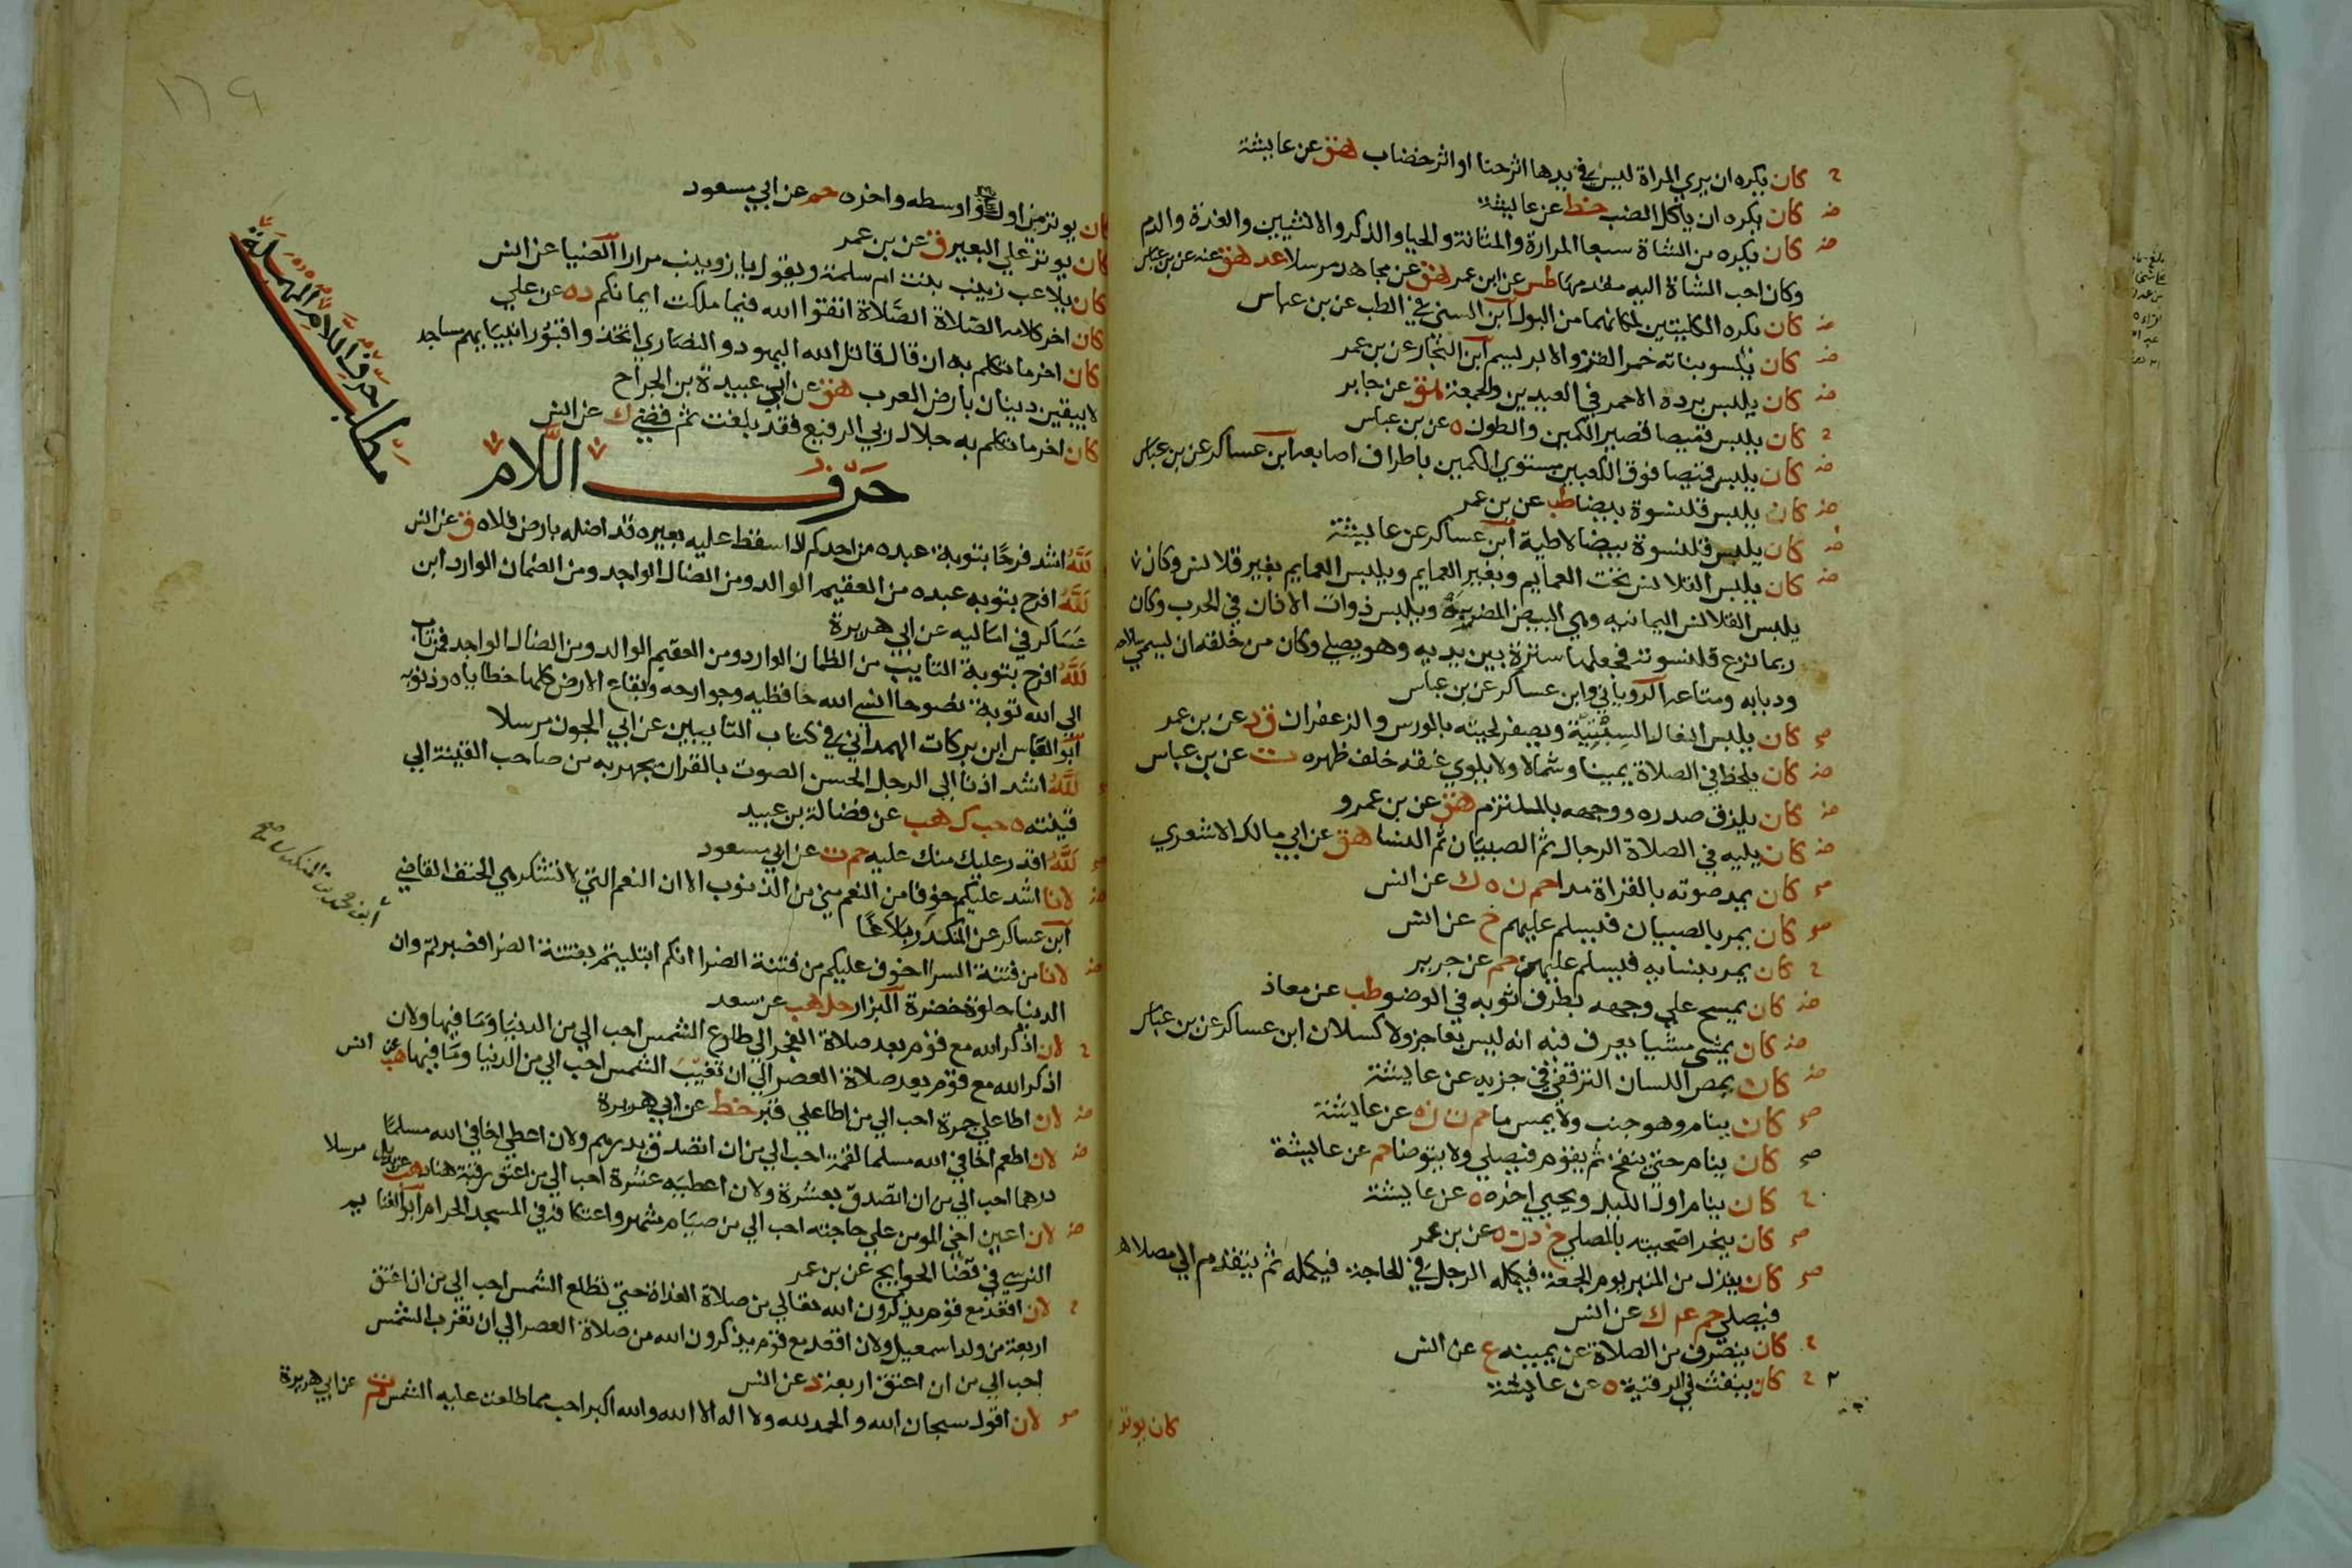 كان يكره ان يري المراة ليس في يدها اثر حنا او اثر خضاب هق عن عايشة
كان يكره ان ياكل الضب خط عن عايشة
كان يكره من الشاة سبعا المرارة والمثانة والحيا والذكر والانثيين والغدة والدم
وكان احب الشاة اليه مقدمها طس عن ابن عمر هق عن مجاهد مرسلا عد هق عنه عن بن عباس
كان يكره الكليتين لمكانهما من البول ابن السني في الطب عن بن عباس
كان يكسو بناته خمر القز والابريسم ابن النجار عن بن عمر
كان يلبس برده الاحمر في العيدين والجمعة هق عن جابر
كان يلبس قميصا قصير الكمين والطول ه عن بن عباس
كان يلبس قميصا فوق الكعبين مستوي الكمين باطراف اصابعه ابن عساكر عن بن عباس
كان يلبس قلنسوة بيضا طب عن بن عمر
كان يلبس قلنسوة بيضا لاطية ابن عساكر عن عايشة
كان يلبس القلانس تحت العمايم وبغير العمايم ويلبس العمايم بغير قلانس وكان
يلبس القلانس اليمانيه وهي البيض المضربة ويلبس ذوات الاذان في الحرب وكان
ربما نزع قلنسوته فجعلها سترة بين يديه وهو يصلي وكان من خلقه ان يسمي سلاحه
ودبابه ومتاعه الروياني وابن عساكر عن بن عباس
كان يلبس النعال السبتية ويصفر لحيته بالورس والزعفران ق د عن بن عمر
كان يلحظ في الصلاة يمينا وشمالا ولا يلوي عنقه خلف ظهره ت عن بن عباس
كان يلزق صدره ووجهه بالملتزم هق عن بن عمرو
كان يليه في الصلاة الرجال ثم الصبيان ثم النسا هق عن ابي مالك الاشعري
كان يمد صوته بالقراة مدا حم ن ه ك عن انس
كان يمر بالصبيان فيسلم عليهم خ عن انس
كان يمر بنسايه فيسلم عليهن حم عن جرير
كان يمسح علي وجهه بطرف ثوبه في الوضو طب عن معاذ
كان يمشي مشيا يعرف فيه انه ليس بعاجز ولا كسلان ابن عساكر عن بن عباس
كان يمص اللسان الترقفي في جزيه عن عايشة
كان ينام وهو جنب ولا يمس ما حم ت ن ه عن عايشة
كان ينام حتي ينفخ ثم يقوم فيصلي ولا يتوضا حم عن عايشة
كان ينام اول الليل ويحيي اخره ه عن عايشة
كان ينحر اضحيته بالمصلي خ د ن ه عن بن عمر
كان ينزل من المنبر يوم الجمعة فيكلمه الرجل في الحاجة فيكلمه ثم يتقدم الي مصلاه
فيصلي حم عه ك عن انس
كان ينصرف من الصلاة عن يمينه ع عن انس
كان ينفث في الرقية ه عن عايشة
كان يوتر
١٦٩
كان يوتر من اول الليل واوسطه واخره حم عن ابي مسعود
كان يوتر علي البعير ق عن بن عمر
كان يلاعب زينب بنت ام سلمة ويقول يا زوينب مرارا الضيا عن انس
كان اخر كلامه الصلاة الصلاة اتقوا الله فيما ملكت ايمانكم د ه عن علي
كان اخر ما تكلم به ان قال قاتل الله اليهود والنصاري اتخذوا قبور انبيايهم مساجد
لا يبقين دينان بارض العرب هق عن ابي عبيدة بن الجراح
كان اخر ما تكلم به جلال ربي الرفيع فقد بلغت ثم قضي ك عن انس
حرف اللام
مطلب حرف اللام
لله اشد فرحا بتوبة عبده من احدكم اذا سقط عليه بعيره قد اضله بارض فلاه ق عن انس
لله افرح بتوبه عبده من العقيم الوالد ومن الضال الواجد ومن الضمان الوارد ابن
عساكر في اماليه عن ابي هريرة
لله افرح بتوبة التايب من الظمان الوارد ومن العقيم الوالد ومن الضال الواجد فمن تاب
الي الله توبة نصوحا انسي الله حافظيه وجوارحه وبقاع الارض كلها خطاياه وذنوبه
ابو العباس ابن بركات الهمداني في كتاب التايبين عن ابي الجون مرسلا
لله اشد اذنا الي الرجل الحسن الصوت بالقران يجهر به من صاحب القينة الي
قينته ه حب ك هب عن فضالة بن عبيد
لله اقدر عليك منك عليه حم ت عن ابي مسعود
لانا اشد عليكم خوفا من النعم مني من الذنوب الا ان النعم التي لا تشكر هي الحتف القاضي
ابن عساكر عن المنكدر بلاغا
لانا من فتنة السرا اخوف عليكم من فتنة الضرا انكم ابتليتم بفتنة الضرا فصبرتم وان
الدنيا حلوة خضرة البزار حل هب عن سعد
لان اذكر الله مع قوم بعد صلاة الفجر الي طلوع الشمس احب الي من الدنيا وما فيها ولان
اذكر الله مع قوم بعد صلاة العصر الي ان تغيب الشمس احب الي من الدنيا وما فيها هب عن انس
لان اطا علي جمرة احب الي من اطا علي قبر خط عن ابي هريرة
لان اطعم اخا في الله مسلما لقمة احب الي من ان اتصدق بدرهم ولان اعطي اخا في الله مسلما
درهما احب الي من ان اتصدق بعشرة ولان اعطيه عشرة احب الي من اعتق رقبة هناد هب عن بديل مرسلا
لان اعين اخي المومن علي حاجته احب الي من صيام شهر واعتكافه في المسجد الحرام ابو الغنايم
النرسي في قضا الحوايج عن بن عمر
لان اقعد مع قوم يذكرون الله تعالي من صلاة الغداة حتي تطلع الشمس احب الي من ان اعتق
اربعة من ولد اسمعيل ولان اقعد مع قوم يذكرون الله من صلاة العصر الي ان تغرب الشمس
احب الي من ان اعتق اربعة د عن انس
لان اقول سبحان الله والحمد لله ولا اله الا الله والله اكبر احب مما طلعت عليه الشمس م ت عن ابي هريرة